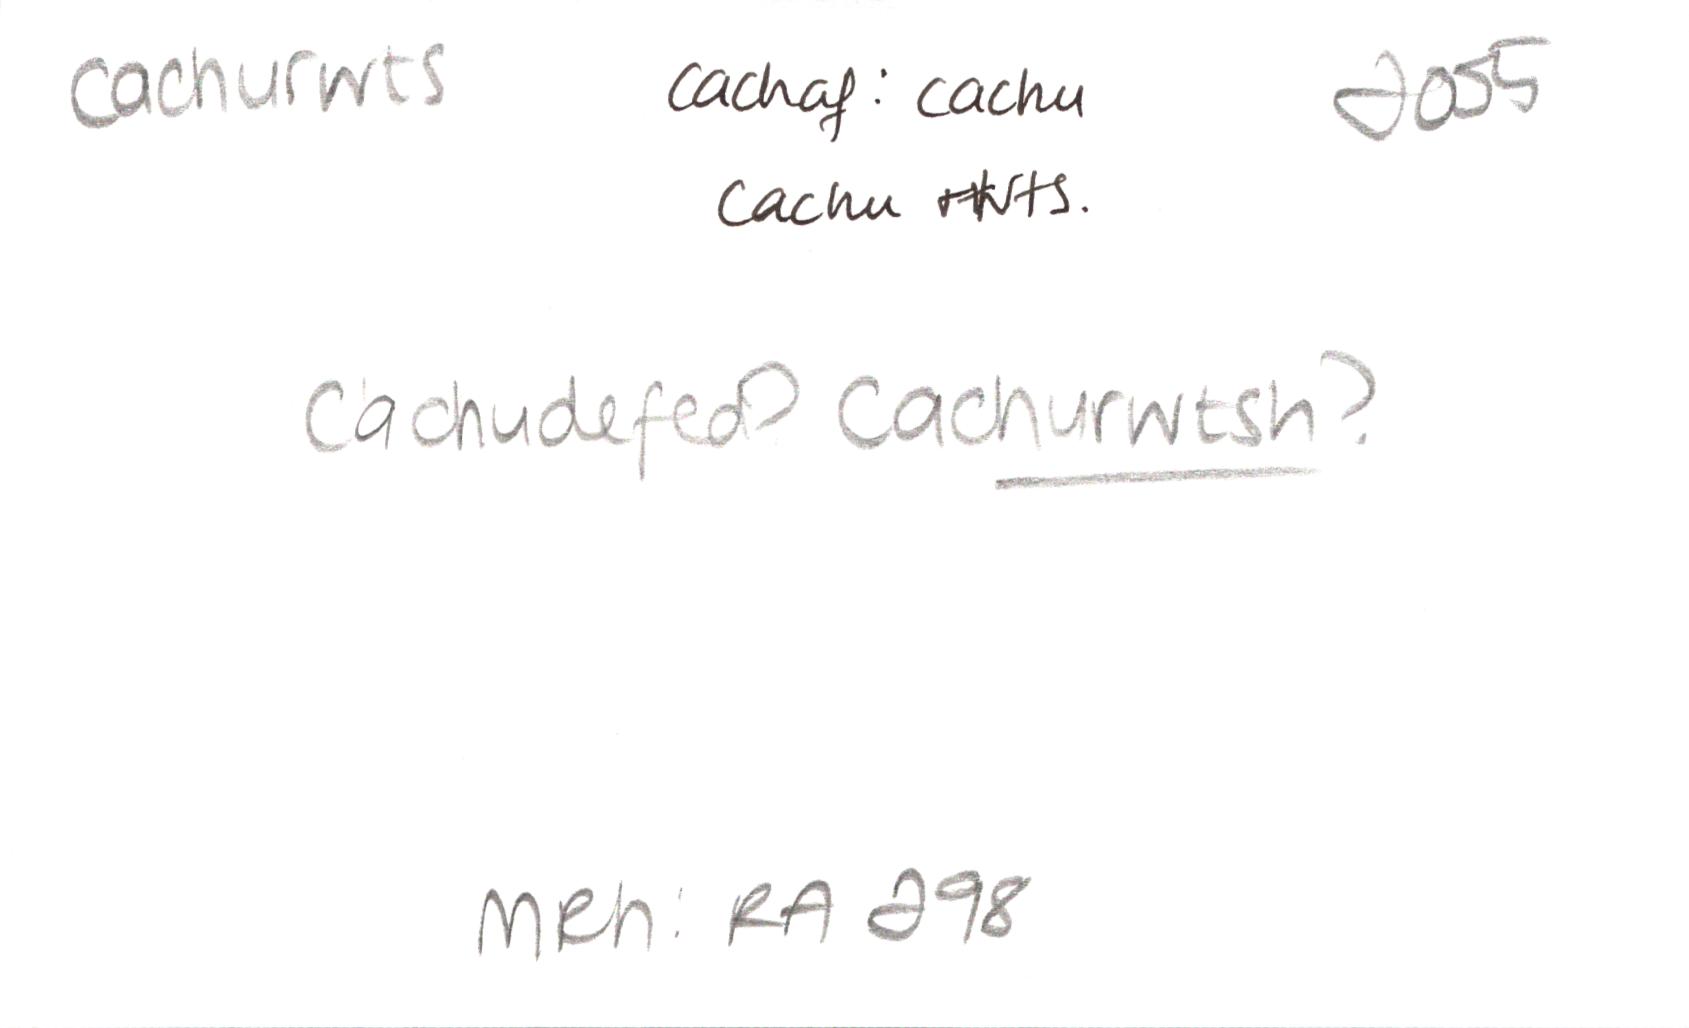 cachurwts cachaf: cachu 2055
cachu rwts.
Cachudefed? Cachurwtsh?
MRh: RA 298